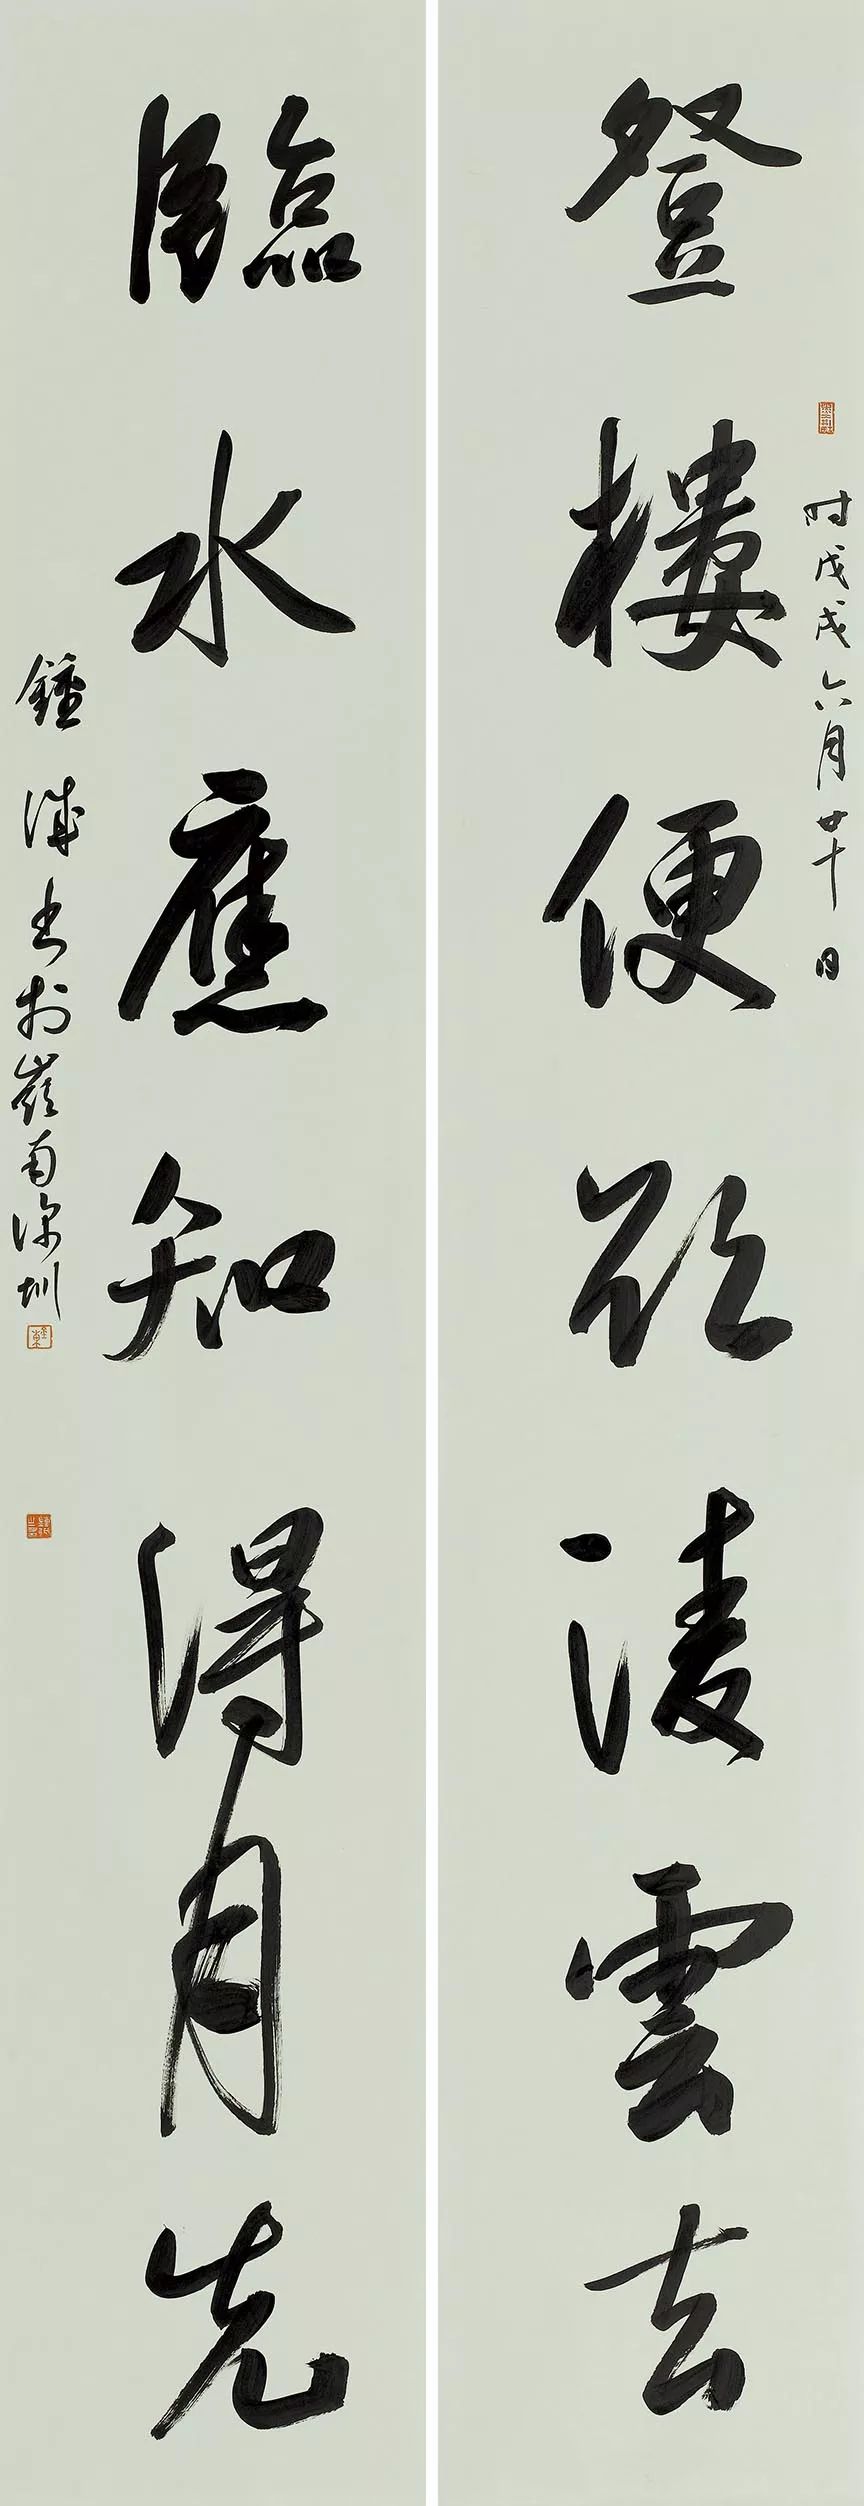 登樓便欲凌雲去
时戊戌六月廿十日
臨水應知得月先
鍾𣸣书於嶺南深圳